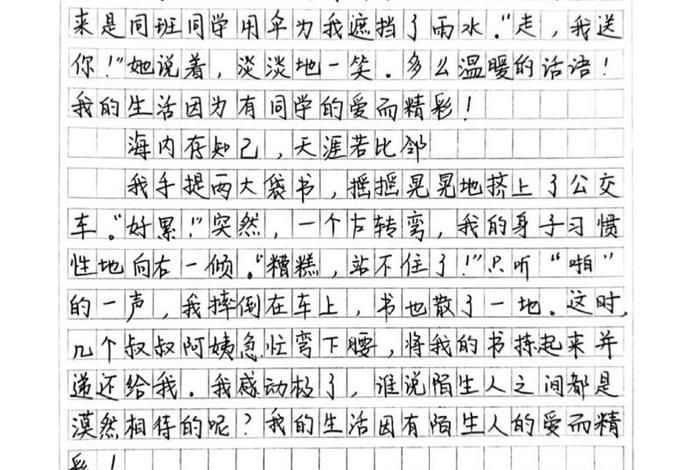 来是同班同学用伞为我遮挡了雨水。"走，我送
你！"她说着，淡淡地一笑。多么温暖的话语！
我的生活因为有同学的爱而精彩！
海内存知己，天涯若比邻
我手提两大袋书，摇摇晃晃地挤上了公交
车。"好累！"突然，一个左转弯，我的身子习惯
性地向右一倾。"糟糕，站不住了！"只听"啪"
的一声，我摔倒在车上，书也散了一地。这时，
几个叔叔阿姨急忙弯下腰，将我的书拣起来并
递还给我。我感动极了，谁说陌生人之间都是
漠然相待的呢？我的生活因有陌生人的爱而精
彩！